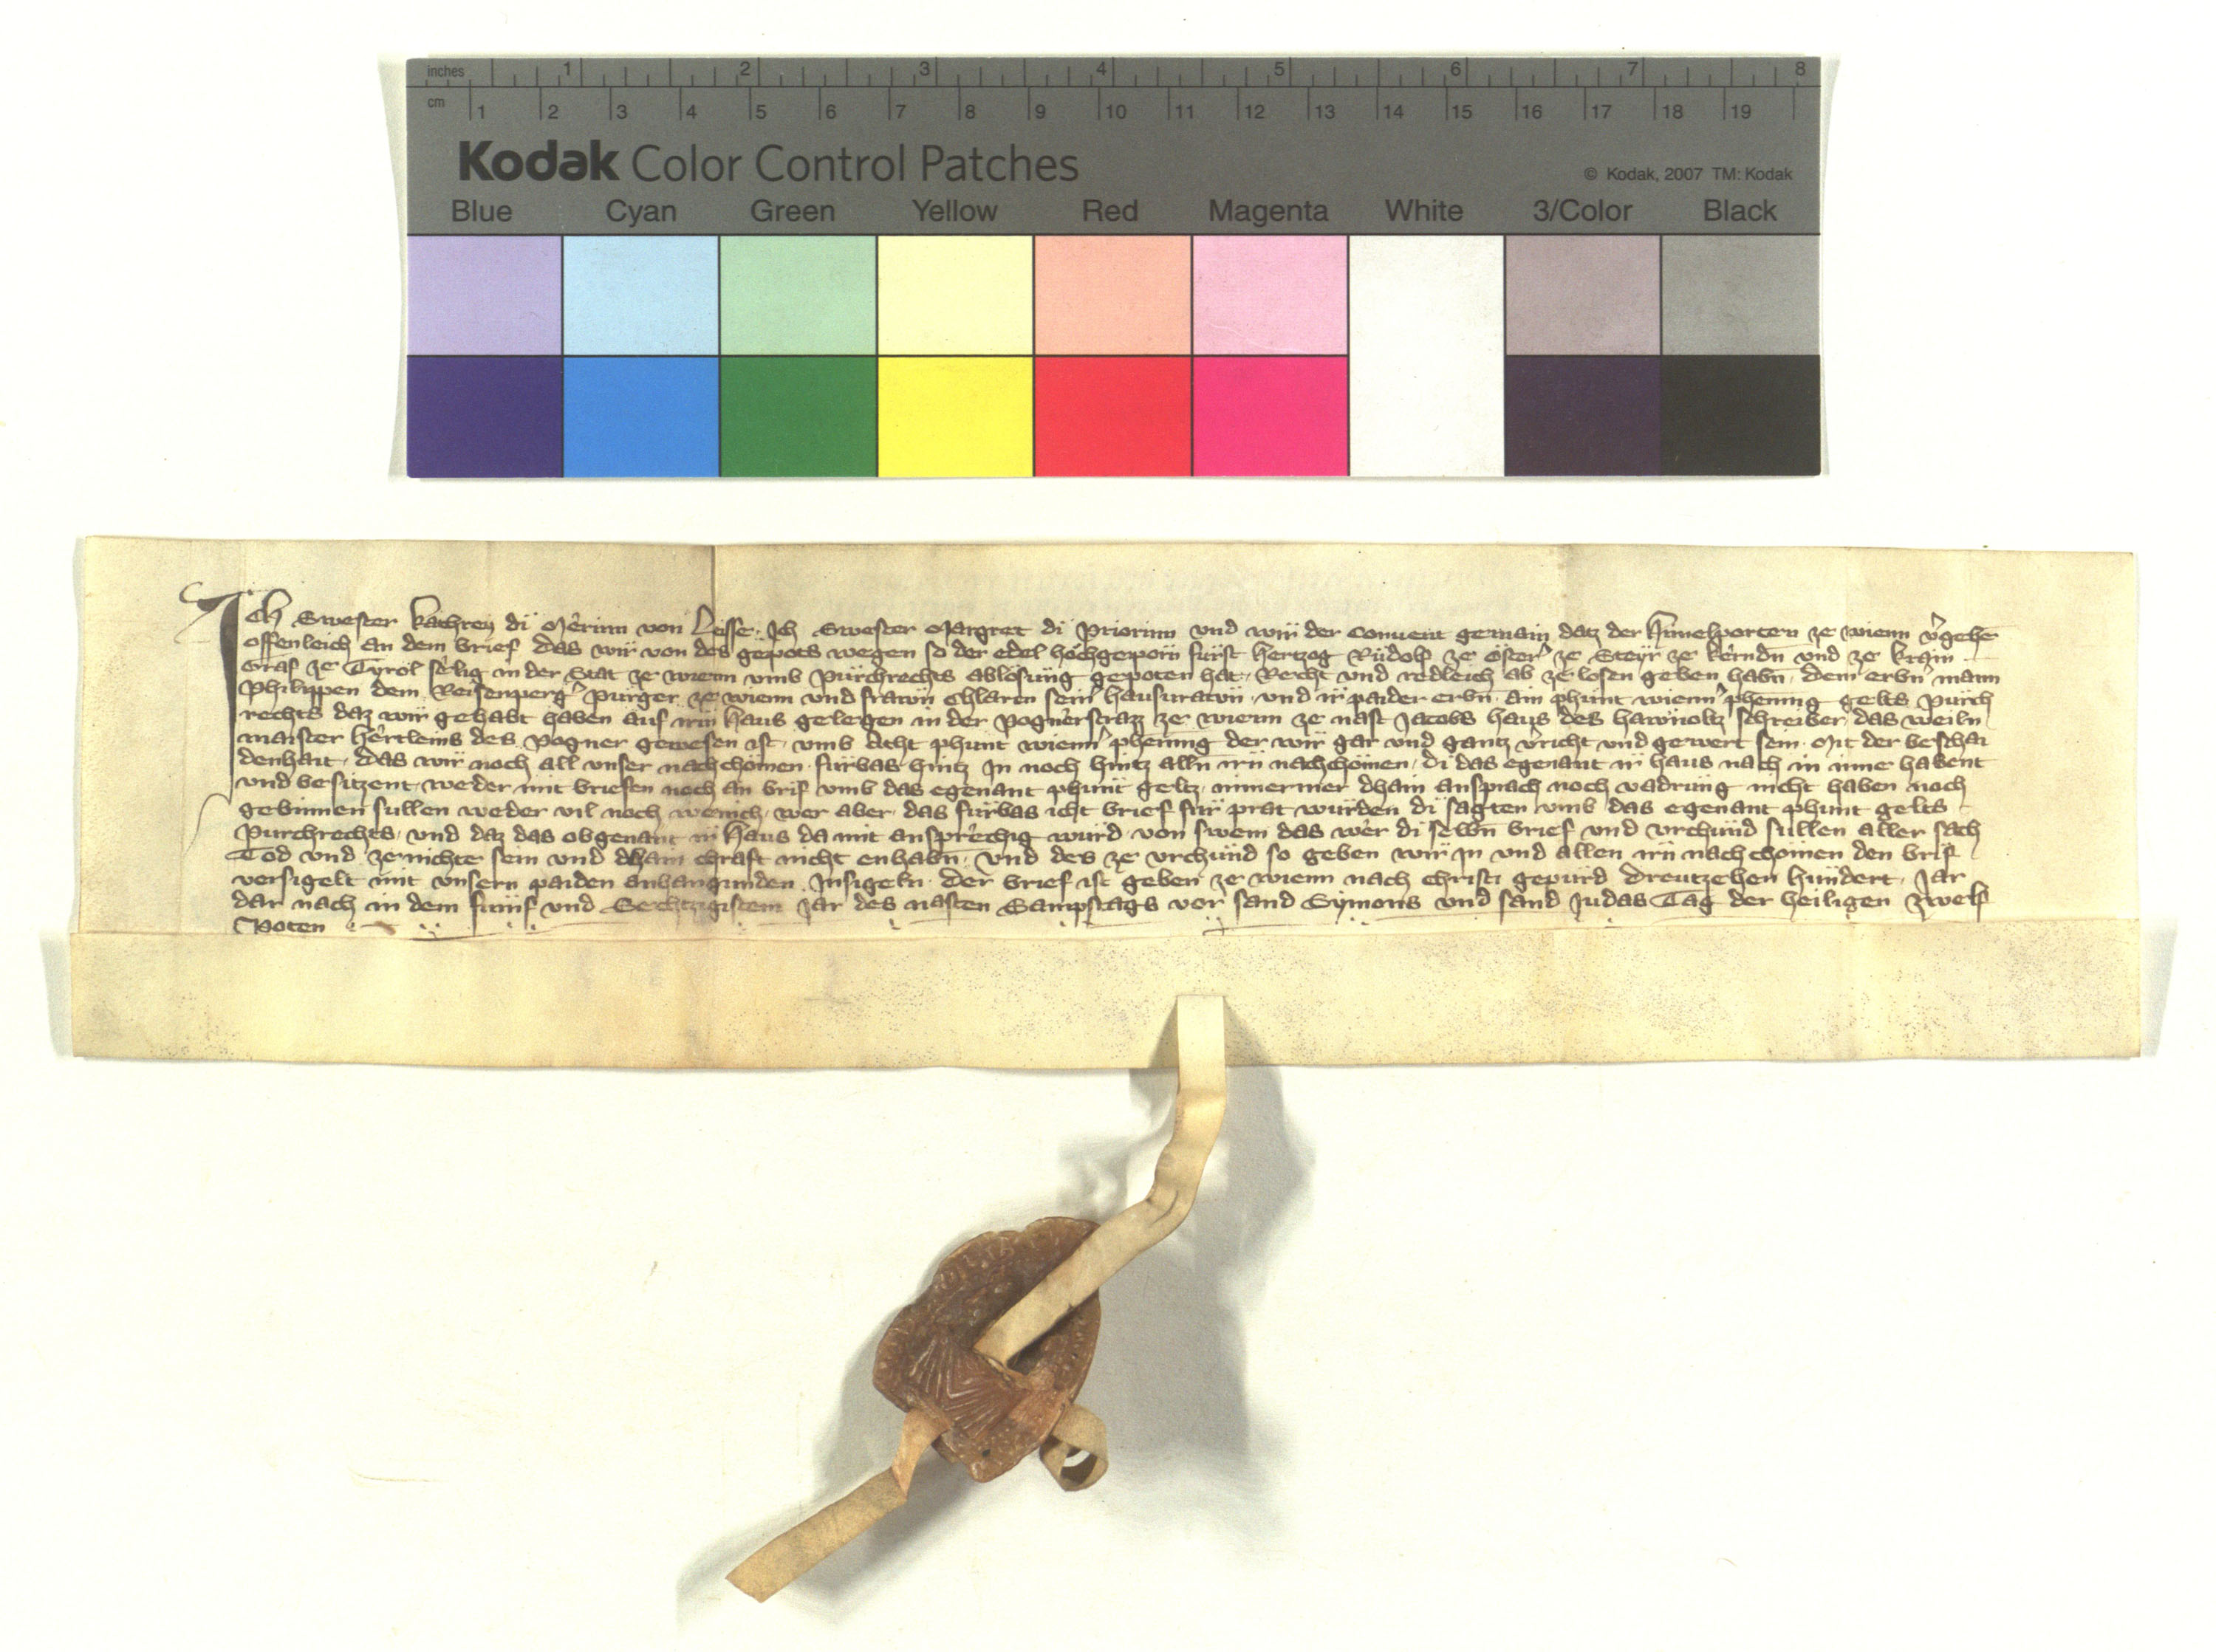 inches 1 2 3 4 5 6 7 8
cm 1 2 3 4 5 6 7 8 9 10 11 12 13 14 15 16 17 18 19
Kodak Color Control Patches © Kodak, 2007 TM: Kodak
Blue Cyan Green Yellow Red Magenta White 3/Color Black
Ich Swester kathrey di Mêrinn von Leisse. Ich Swester Margret di Priorinn vnd wir der Conuent gemain datz der Himelporten ze wienn v̂gehē
offenleich an dem brief das wir von des gepots wegen so der edel hochgeporn fürst hertzog Rüdolf ze Öster̂ ze Steyr ze kêrndn̄ vnd ze krain
Graf ze Tyrol sêlig in der Stat ze wienn vmb Pürchrechts ablosung gepoten hat. Recht vnd redleich ab ze losen geben habn̄. dem erbn̂ mann
Philippen dem Reisenperĝ purger ze wienn vnd frawn̄ chlaren sein̂ hausurawn̄. vnd ir paider erbn̄. ain phunt wienn̂ phenning gelts Purch
rechts daz wir gehabt haben auf irm haus gelegen in der Pognerstrazz ze wienn ze nast Jacobs haus des schreiber, das weiln
maister hêrtleins des Pogner gewesen ist, vmb Acht phunt wienn̂ phenning der wir gar vnd gantz v̂richt vnd gewert sein. Mit der beschai
denhait. das wir noch all vnser nachchomen fürbas hintz In noch hintz alln irn nachchomen, di das egenant ir haus nach in inne habent
vnd besitzent, weder mit briefen noch an brif vmb das egenant phunt geltz, nimermer dhain ansprach noch vadrung nicht haben noch
gebinnen sullen weder vil noch wenich, wer aber, das fürbas icht brief für prat würden di sagten vmb das egenant phunt gelts
Purchrechts, vnd daz das obgenant ir haus da mit ansprêchig wurd von swem das wêr di selbn̄ brief vnd vrchund sullen aller sach
Tod vnd zernichte sein vnd dhain chraft nicht enhabn̄. vnd des ze vrchund so geben wir in vnd allen irn nachchomen den brif
versigelt mit vnsern paiden anhangunden Insigeln. Der brief ist geben ze wienn nach christi gepurd Dreutzehen hundert Jar
dar nach in dem fumf vnd Sechtzigistem Jar des nasten Sampstags vor sand Symons vnd sand Judas Tag der heiligen zwelf
Poten